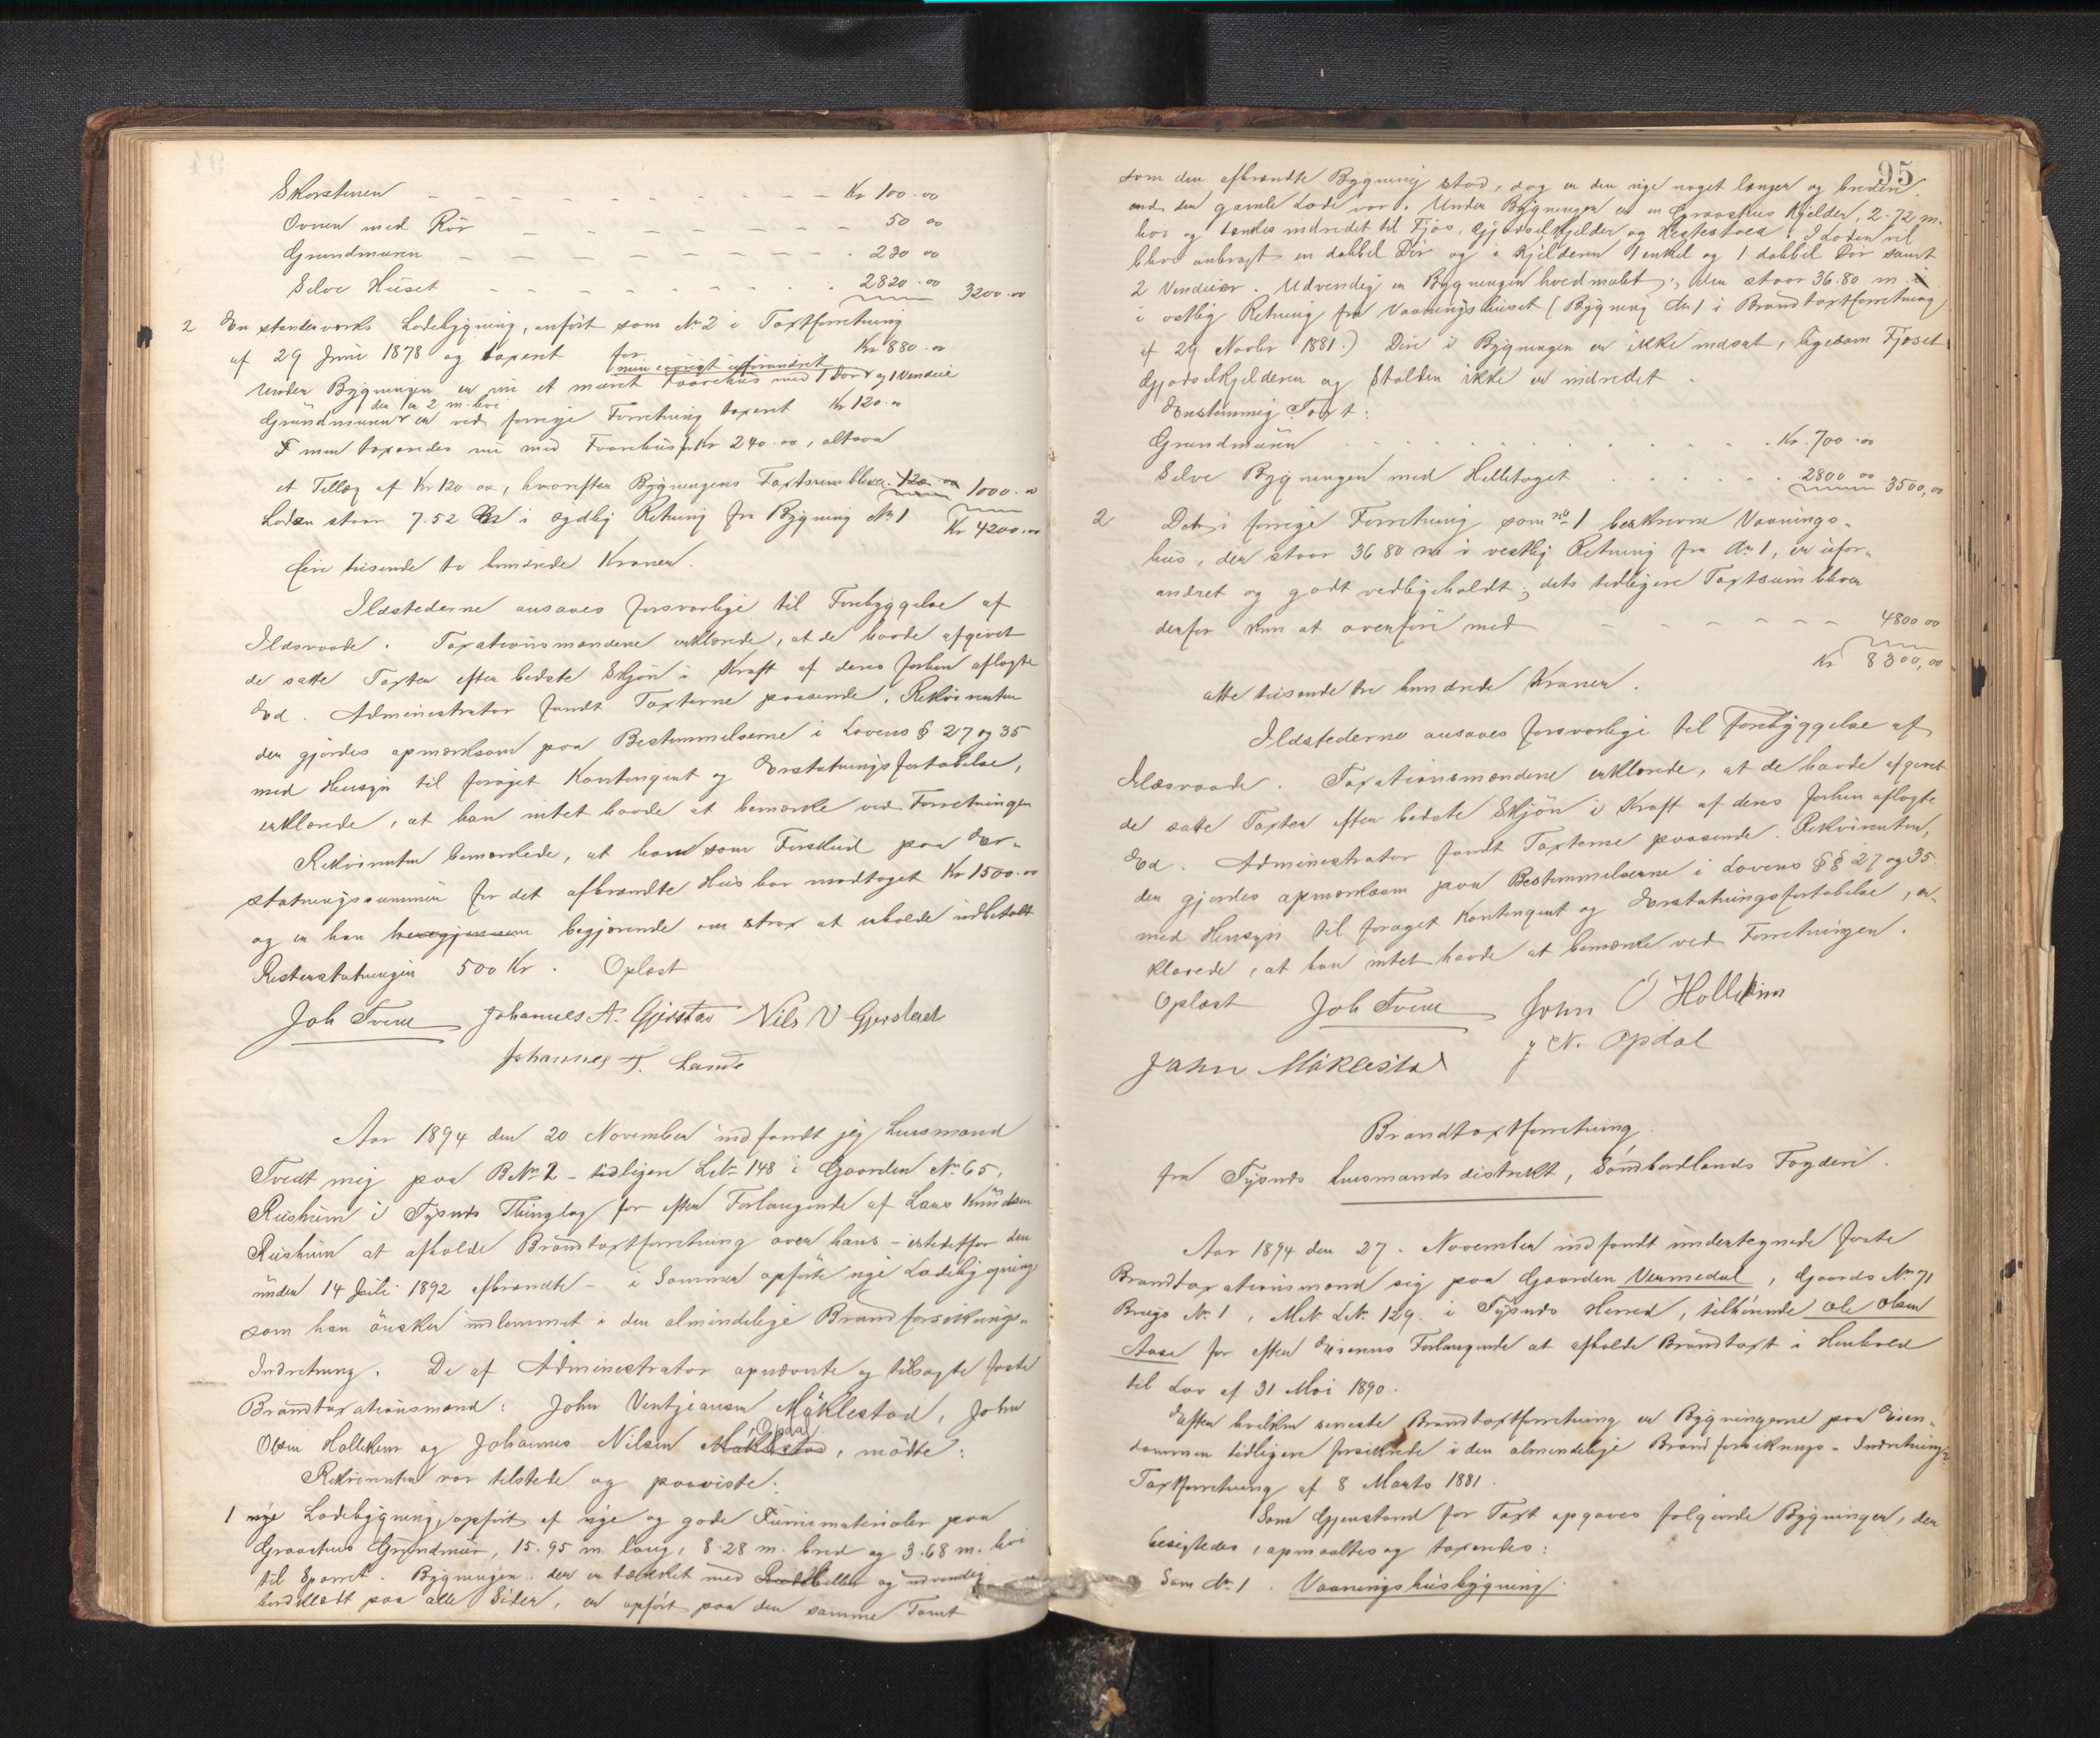 Skorstenen - - - - - - - - - - - Kr 100.00
Ovnen med Rör - - - - - - - - - 50 00
Grundmuren - - - - - - - - - . 230 00
Selve Huset - - - - - - - - . 2820.00 3200.00
2 En stenderverks Ladebygning, anfört som No 2 i Taxtforretning
af 29 Juni 1878 og taxeret for Kr 880.00
men övrigt uforandret
Under Bygningen er nu et muret Faarehus med 1 Dör og 1 Vendeie
den er 2 m. höi
Grundmuren er ved forrige Forretning taxeret Kr 120.00
men taxeredes nu med Faarehus f. Kr 240.00, altsaa
et Tillæg af Kr 120 00, hvorefter Bygningens Taxtsum bliver 120 00 1000.00
Laden staar 7.52 m i sydlig Retning fra Bygning No 1 Kr 4200.00
fire tusende to hundrede Kroner.
Ildstederne ansaaes forsvarlige til Forebyggelse af
Ildsvaade. Taxationsmændene erklærede, at de havde afgivet
de satte Taxter efter bedste Skjön i Kraft af deres forhen aflagte
Ed. Administrator fandt Taxterne passende. Rekvirenten
der gjordes opmærksom paa Bestemmelserne i Lovens § 27 og 35
med Hensyn til foröget Kontingent og Erstatningsfortabelse,
erklærede, at han intet havde at bemærke ved Forretningen
Rekvirenten bemærkede, at han som Forskud paa Er-
statningssummen for det afbrændte Hus har modtaget Kr 1500.00
og er han begjærende om strax at erholde udbetalt
Resterstatningen 500 Kr. Oplæst
Joh Tveit Johannes A. Gjerstad Nils N Gjerstad
Johannes T. Lande
Aar 1894 den 20 November indfandt jeg Lensmand
Tvedt mig paa B.No 2 - tidligere L.No 148 i Gaarden No 65,
Risheim i Tysnes Thinglag for efter Forlangende af Lars Knudsen
Risheim at afholde Brandtaxtforretning over hans - istedetfor den
under 14 Juli 1892 afbrændte - i Sommer opförte nye Ladebygning
som han önsker indlemmet i den almindelige Brandforsikrings-
Indretning. De af Administrator opnævnte og tilsagte faste
Brandtaxationsmænd: John Ventjeansen Måklestad, John
Olsen Hollekim og Johannes Nilsen Måklestad Opdal, mödte:
Rekvirenten var tilstede og paaviste:
1 nye Ladebygning, opfört af nye og gode Furumaterialer paa
Graastens Grundmur, 15.95 m. lang, 8.28 m. bred og 3.68 m. höi
til Sperret. Bygningen, der er tækket med heller og udvendig
bordklædt paa alle Sider, er opfört paa den samme Tomt
95
som den afbrændte Bygning stod, dog er den nye noget længer og bredere
end den gamle Lade var. Under Bygningen er en Graastens Kjelder, 2.72 m.
höi og tænkes indredet til Fjös, Gjödselkjelder og Hestestald. I Laden vil
blive anbragt en dobbel Dör og i Kjelderen 1 enkel og 1 dobbel Dör samt
2 Venduer. Udvendig er Bygningen hvidmalet; den staar 36.80 m.
i östlig Retning fra Vaaningshuset (Bygning No 1 i Brandtaxtforretning
af 29 Novbr 1881.) Döre i Bygningen er ikke indsat, ligesom Fjöset
Gjödselkjelderen og Stalden ikke er indredet.
Enstemmig Taxt:
Grundmuren . . . . . . . . . . Kr. 700.00
Selve Bygningen med Helletaget . . . . . . 2800 00 3500,00
2 Det i forrige Forretning som No 1 beskrevne Vaanings-
hus, der staar 36 80 m i vestlig Retning fra No 1, er ufor-
andret og godt vedligeholdt; dets tidligere Taxtsum bliver
derfor kun at overföre med - - - - - - 4800 00
Kr 8300,00
otte tusende tre hundrede Kroner.
Ildstederne ansaaes forsvarlige til Forebyggelse af
Ildsvaade. Taxationsmændene erklærede, at de havde afgivet
de satte Taxter efter bedste Skjön i Kraft af deres forhen aflagte
Ed. Administrator fandt Taxterne passende. Rekvirenten,
der gjordes opmærksom paa Bestemmelserne i Lovens §§ 27 og 35
med Hensyn til foröget Kontingent og Erstatningsfortabelse, er-
klærede, at han intet havde at bemærke ved Forretningen.
Oplæst Joh Tveit John O Hollekim
J N. Opdal
John Måklestad
Brandtaxtforretning
fra Tysnes Lensmandsdistrikt, Söndhordlands Fogderi.
Aar 1894 den 27. November indfandt undertegnede faste
Brandtaxationsmænd sig paa Gaarden Vermedal, Gaards No 71
Brugs No 1, Mat. L.No 129. i Tysnes Herred, tilhörende Ole Olsen
Aase for efter Eierens Forlangende at afholde Brandtaxt i Henhold
til Lov af 31 Mai 1890.
Efter hvilken seneste Brandtaxtforretning er Bygningerne paa Eien-
dommen tidligere forsikrede i den almindelige Brandforsikrings-Indretning?
Taxtforretning af 8 Marts 1881.
Som Gjenstand for Taxt opgaves fölgende Bygninger, der
besigtedes, opmaaltes og taxeredes:
Som No 1. Vaaningshusbygning.